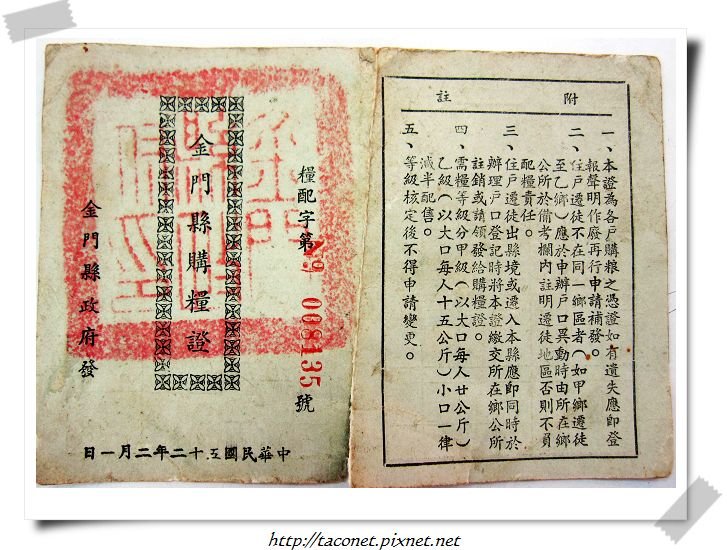 糧配字第 008135 號
金門縣購糧證
金門縣政府發
中華民國五十二年二月一日
附註
一、本證為各戶購粮之憑證如有遺失應即登
報聲明作廢再行申請補發。
二、住戶遷徒不在同一鄉區者（如甲鄉遷徒
至乙鄉）應於申辦戶口異動時由所在鄉
公所於備考欄內註明遷徒地區否則不負
配糧責任。
三、住戶遷徒出縣境或遷入本縣應即同時於
辦理戶口登記時將本證繳交所在鄉公所
註銷或請領發給購糧證。
四、需糧等級分甲級（以大口每人廿公斤）
乙級（以大口每人十五公斤）小口一律
減半配售。
五、等級核定後不得申請變更。
http://taconet.pixnet.net